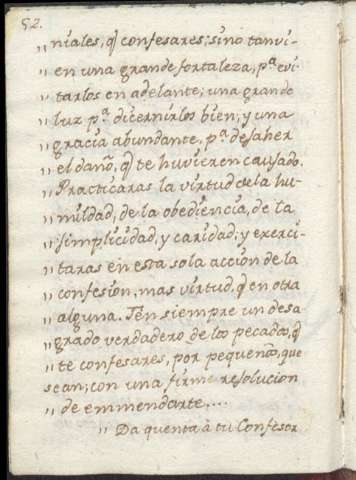 52.
,, niales, q̃ confesares; sino tanvi-
,, en una grande fortaleza, p.ª evi-
,, tarlos en adelante; una grande
,, luz p.ª dicernirlos bien; y una
,, gracia abundante, p.ª desaher
,, el daño, q̃ te huvieren causado.
,, Practicáras la virtud de la hu-
,, mildad, de la obediencia, de la
,, simplicidad, y caridad; y exerci-
,, taras en esta sola acción de la
,, confesión, mas virtud, q̃ en otra
,, alguna. Ten siempre un desa-
,, grado verdadero de los pecados, q̃
,, te confesares, por pequeños, que
sean; con una firme resolucion
,, de emmendarte....
,, Da quenta à tu Confesor